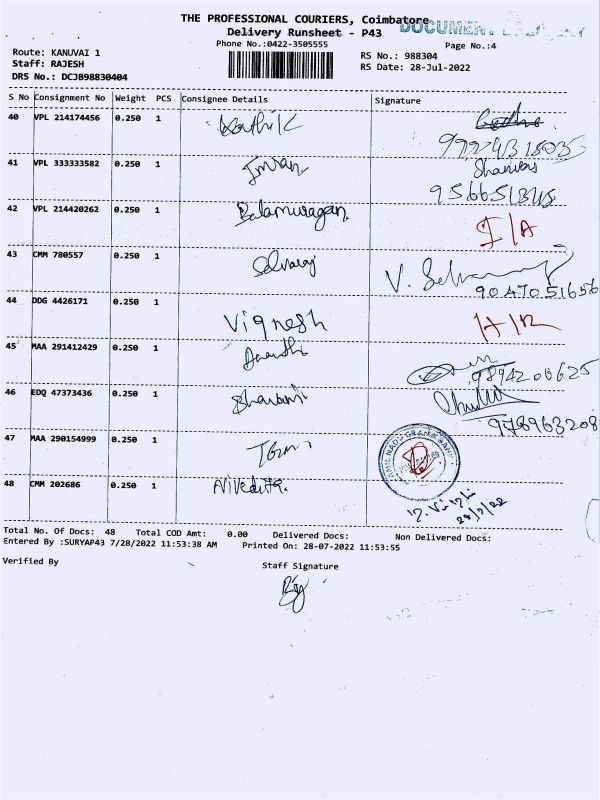 THE PROFESSIONAL COURIERS, Coimbatore
Delivery Runsheet - P43
Phone No.:0422-3505555
Page No.:4
Route: KANUVAI 1
RS No.: 988304
Staff: RAJESH
RS Date: 28-Jul-2022
DRS No.: DCJB98830404
S No Consignment No Weight PCS Consignee Details Signature
40 VPL 214174456 0.250 1 Karthik
41 VPL 333333582 0.250 1 Imran
42 VPL 214420262 0.250 1 Balamuragan I/A
43 CMM 780557 0.250 1 Selvaraj V. Selva
9047051656
44 DDG 4426171 0.250 1 Vignesh
45 MAA 291412429 0.250 1
9894200625
46 EDQ 47373436 0.250 1 Bharani
978963208
47 MAA 290154999 0.250 1
48 CMM 202686 0.250 1 Nivedita
Total No. Of Docs: 48 Total COD Amt: 0.00 Delivered Docs: Non Delivered Docs:
Entered By :SURYAP43 7/28/2022 11:53:38 AM Printed On: 28-07-2022 11:53:55
Verified By Staff Signature